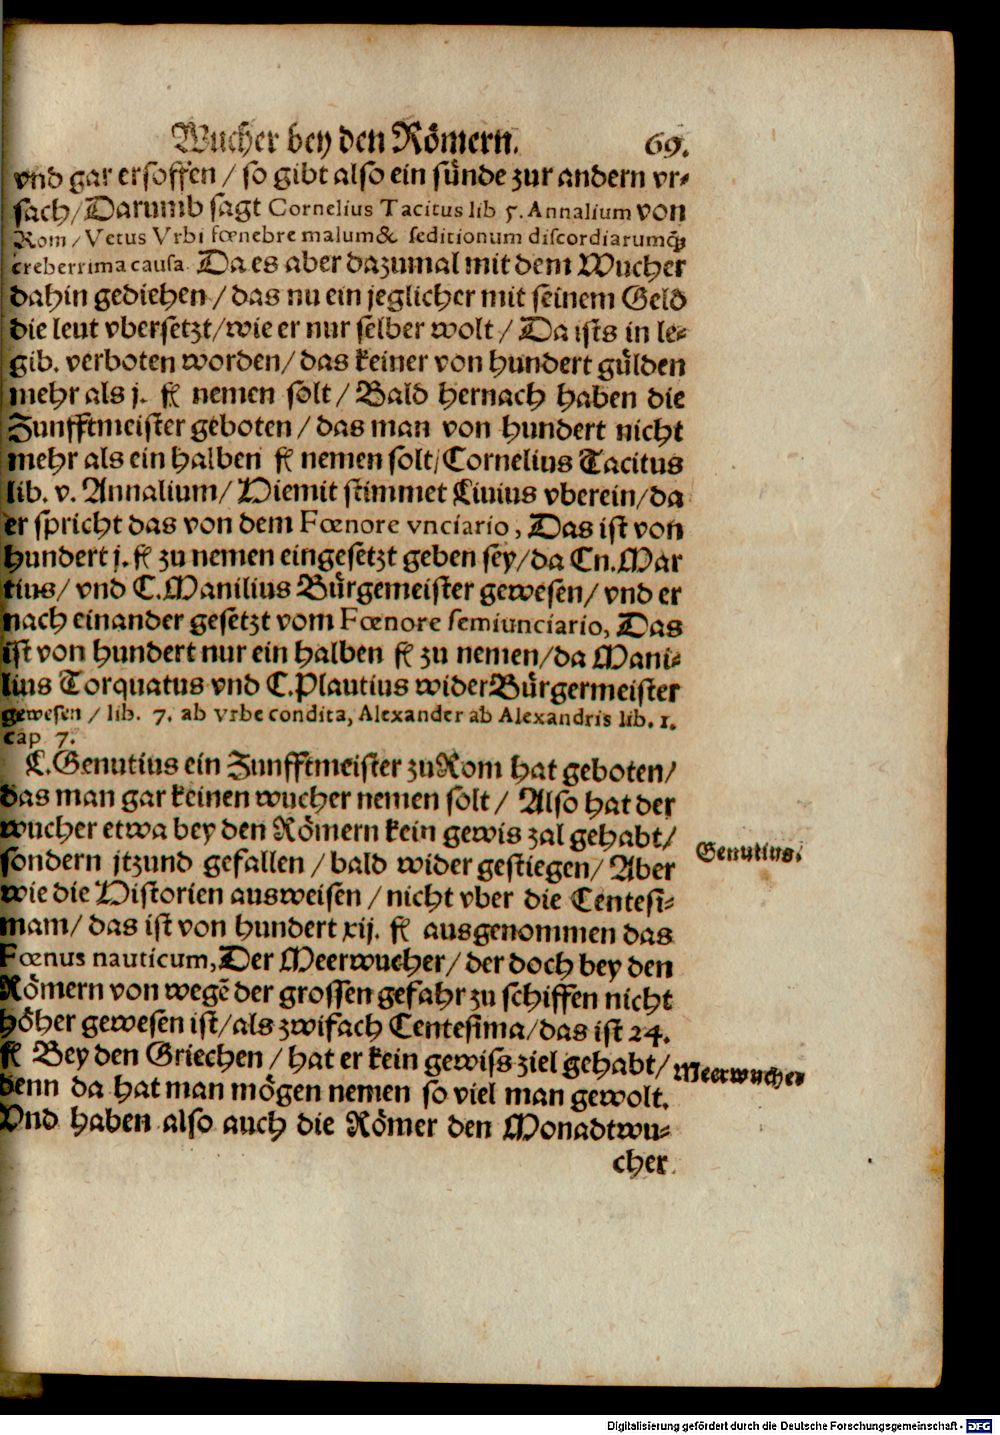 Wucher bey den Römern. 69.
vnd gar ersoffen / so gibt also ein sünde zur andern vr-
sach / Darumb sagt Cornelius Tacitus lib 5. Annalium von
Rom / Vetus Vrbi fœnebre malum & seditionum discordiarumq́;
creberrima causa. Da es aber dazumal mit dem Wucher
dahin gediehen / das nu ein jeglicher mit seinem Geld
die leut vbersetzt / wie er nur selber wolt / Da ists in le-
gib. verboten worden / das keiner von hundert gülden
mehr als j. fl nemen solt / Bald hernach haben die
Zunfftmeister geboten / das man von hundert nicht
mehr als ein halben fl nemen solt / Cornelius Tacitus
lib. v. Annalium / Hiemit stimmet Liuius vberein / da
er spricht das von dem Fœnore vnciario, Das ist von
hundert j. fl zu nemen eingesetzt geben sey / da Cn. Mar
tius / vnd C. Manilius Bürgemeister gewesen / vnd er
nach einander gesetzt vom Fœnore semiunciario, Das
ist von hundert nur ein halben fl zu nemen / da Mani-
lius Torquatus vnd C. Plautius wider Bürgermeister
gewesen / lib. 7. ab vrbe condita, Alexander ab Alexandris lib. 1.
cap 7.
C. Genutius ein Zunfftmeister zu Rom hat geboten /
das man gar keinen wucher nemen solt / Also hat der
wucher etwa bey den Römern kein gewis zal gehabt /
Genutius.
sondern jtzund gefallen / bald wider gestiegen / Aber
wie die Historien ausweisen / nicht vber die Centesi-
mam / das ist von hundert xij. fl ausgenommen das
Fœnus nauticum, Der Meerwucher / der doch bey den
Römern von wegẽ der grossen gefahr zu schiffen nicht
höher gewesen ist / als zwifach Centesima / das ist 24.
fl Bey den Griechen / hat er kein gewiss ziel gehabt /
Meerwucher
denn da hat man mögen nemen so viel man gewolt.
Vnd haben also auch die Römer den Monadtwu-
cher
Digitalisierung gefördert durch die Deutsche Forschungsgemeinschaft - DFG